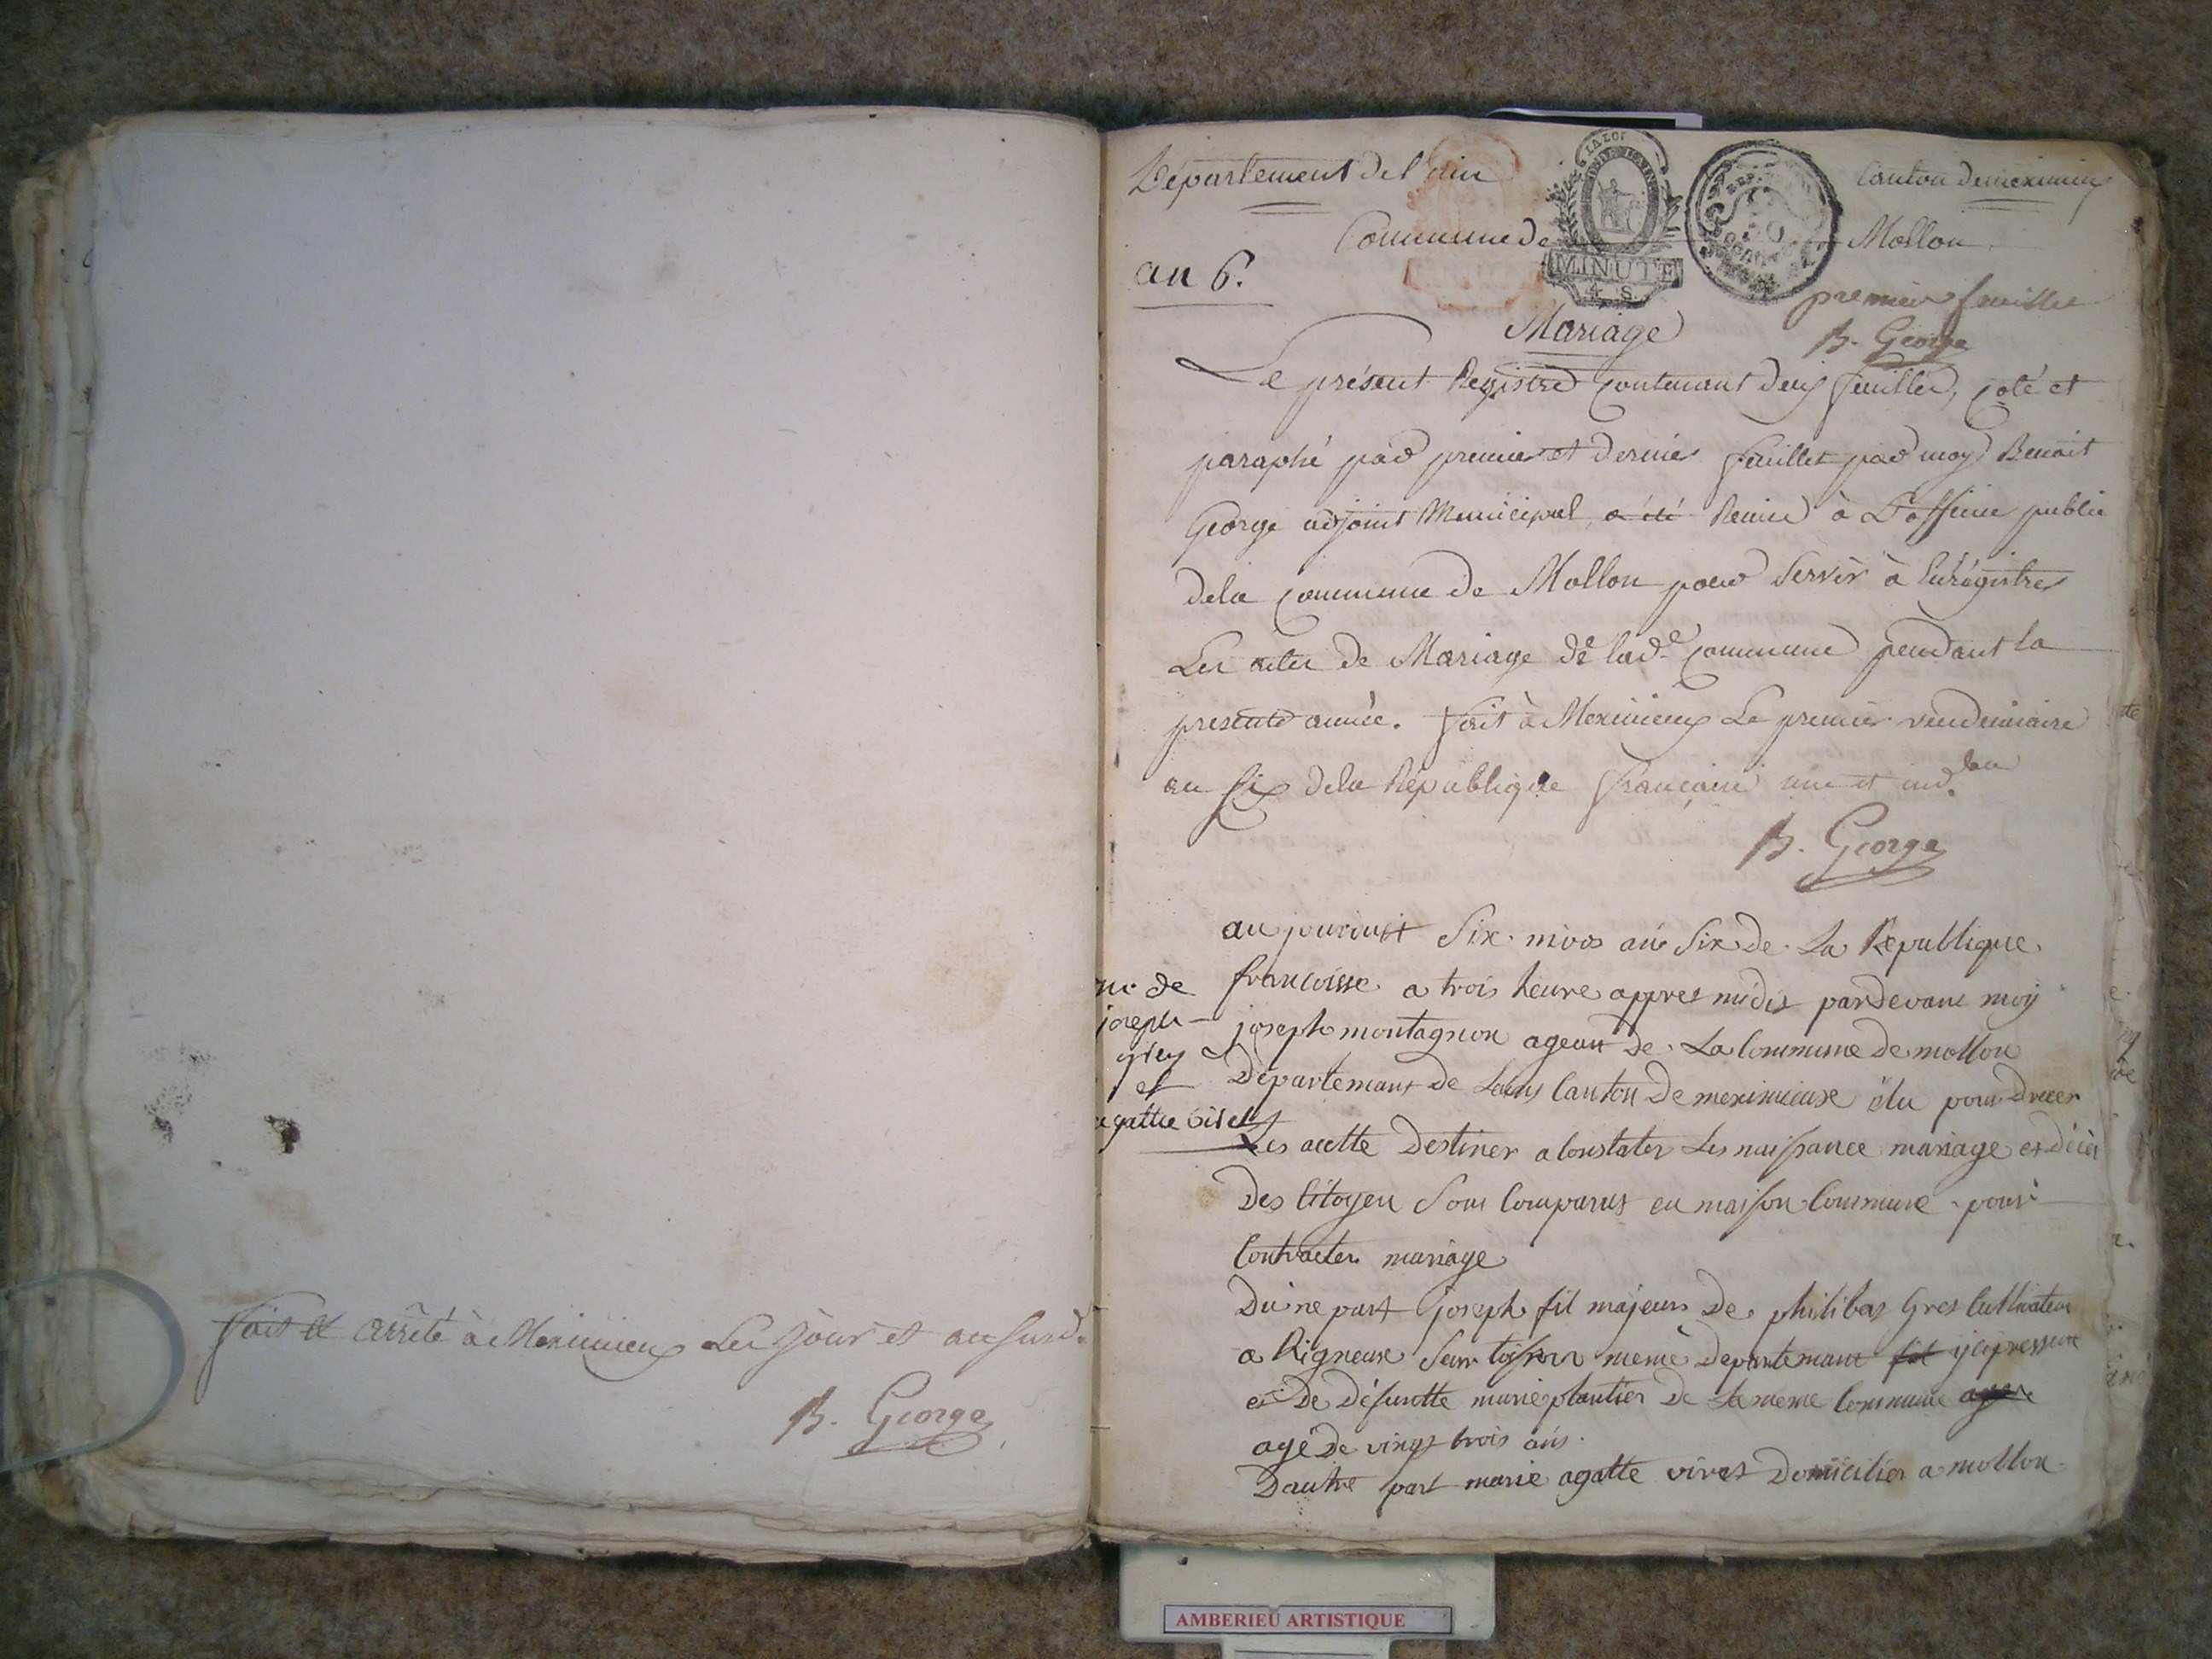 fait et arrêté à Meximieux Les jour et an susd.
B. George
Département de l'ain
Canton de meximieux
Commune de Mollon
LA LOI
MINUTE
4 S.
an 6.
premier feuillet
B. George
Mariage
Le présent Registre Contenant deux feuilles, coté et
paraphé par premier et dernier feuillet par moy Benoit
George adjoint Municipal a été Remis à L'officier public
de la Commune de Mollon pour Servir à Enrégistrer
Les actes de Mariage de lad.e Commune pendant la
presente année. fait à Meximieux Le premier vendemiaire
an Six de la République française une et ind.
B. George
aujourduit Six nivos an Six de La Republique
francoisse a trois heure appres midis pardevant moy
joseph montagnon ageant de La Commune de mollon
Departemant de Lains Canton de meximieux élu pour drecer
Les acette Destiner a Constater Les naissance mariage et décès
Des Citoyen Sont Comparus en maison Commune pour
Contracter mariage
Du'ne part joseph fil majeur De philibert Gres Cultivateur
a Rigneux meme Departemant fil
et De défuntte marie plantier De La meme Commune
agé De vingt trois ans.
Dautre part marie agatte viret Domicilier a mollon
de
joseph
grey
et
agatte viret
AMBERIEU ARTISTIQUE